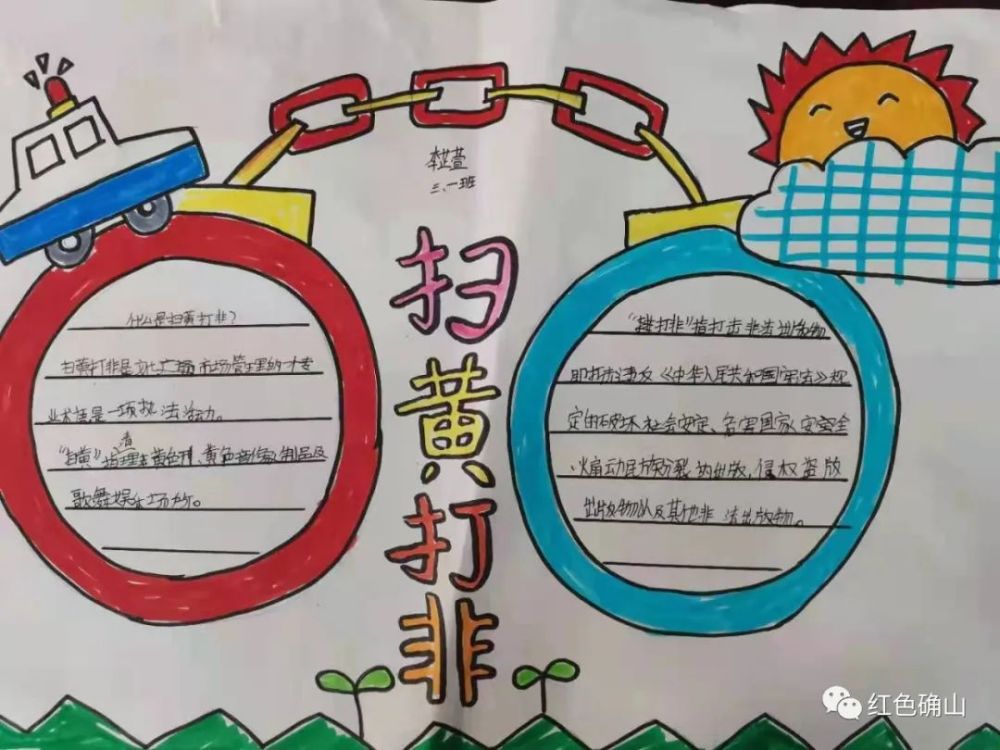 李芷萱
三、一班
扫黄打非
什么是扫黄打非？
扫黄打非是文化广场市场管理的一个专
业术语是一项执法活动。
"扫黄》清理黄色书、黄色音像制品及
歌舞娱乐场所。
"打非"指打击非法出版物
即打击违反《中华人民共和国宪法》规
定的破坏社会安定、危害国家安全
、煽动民族分裂的出版，侵权盗版
出版物以及其他非法出版物。
红色确山